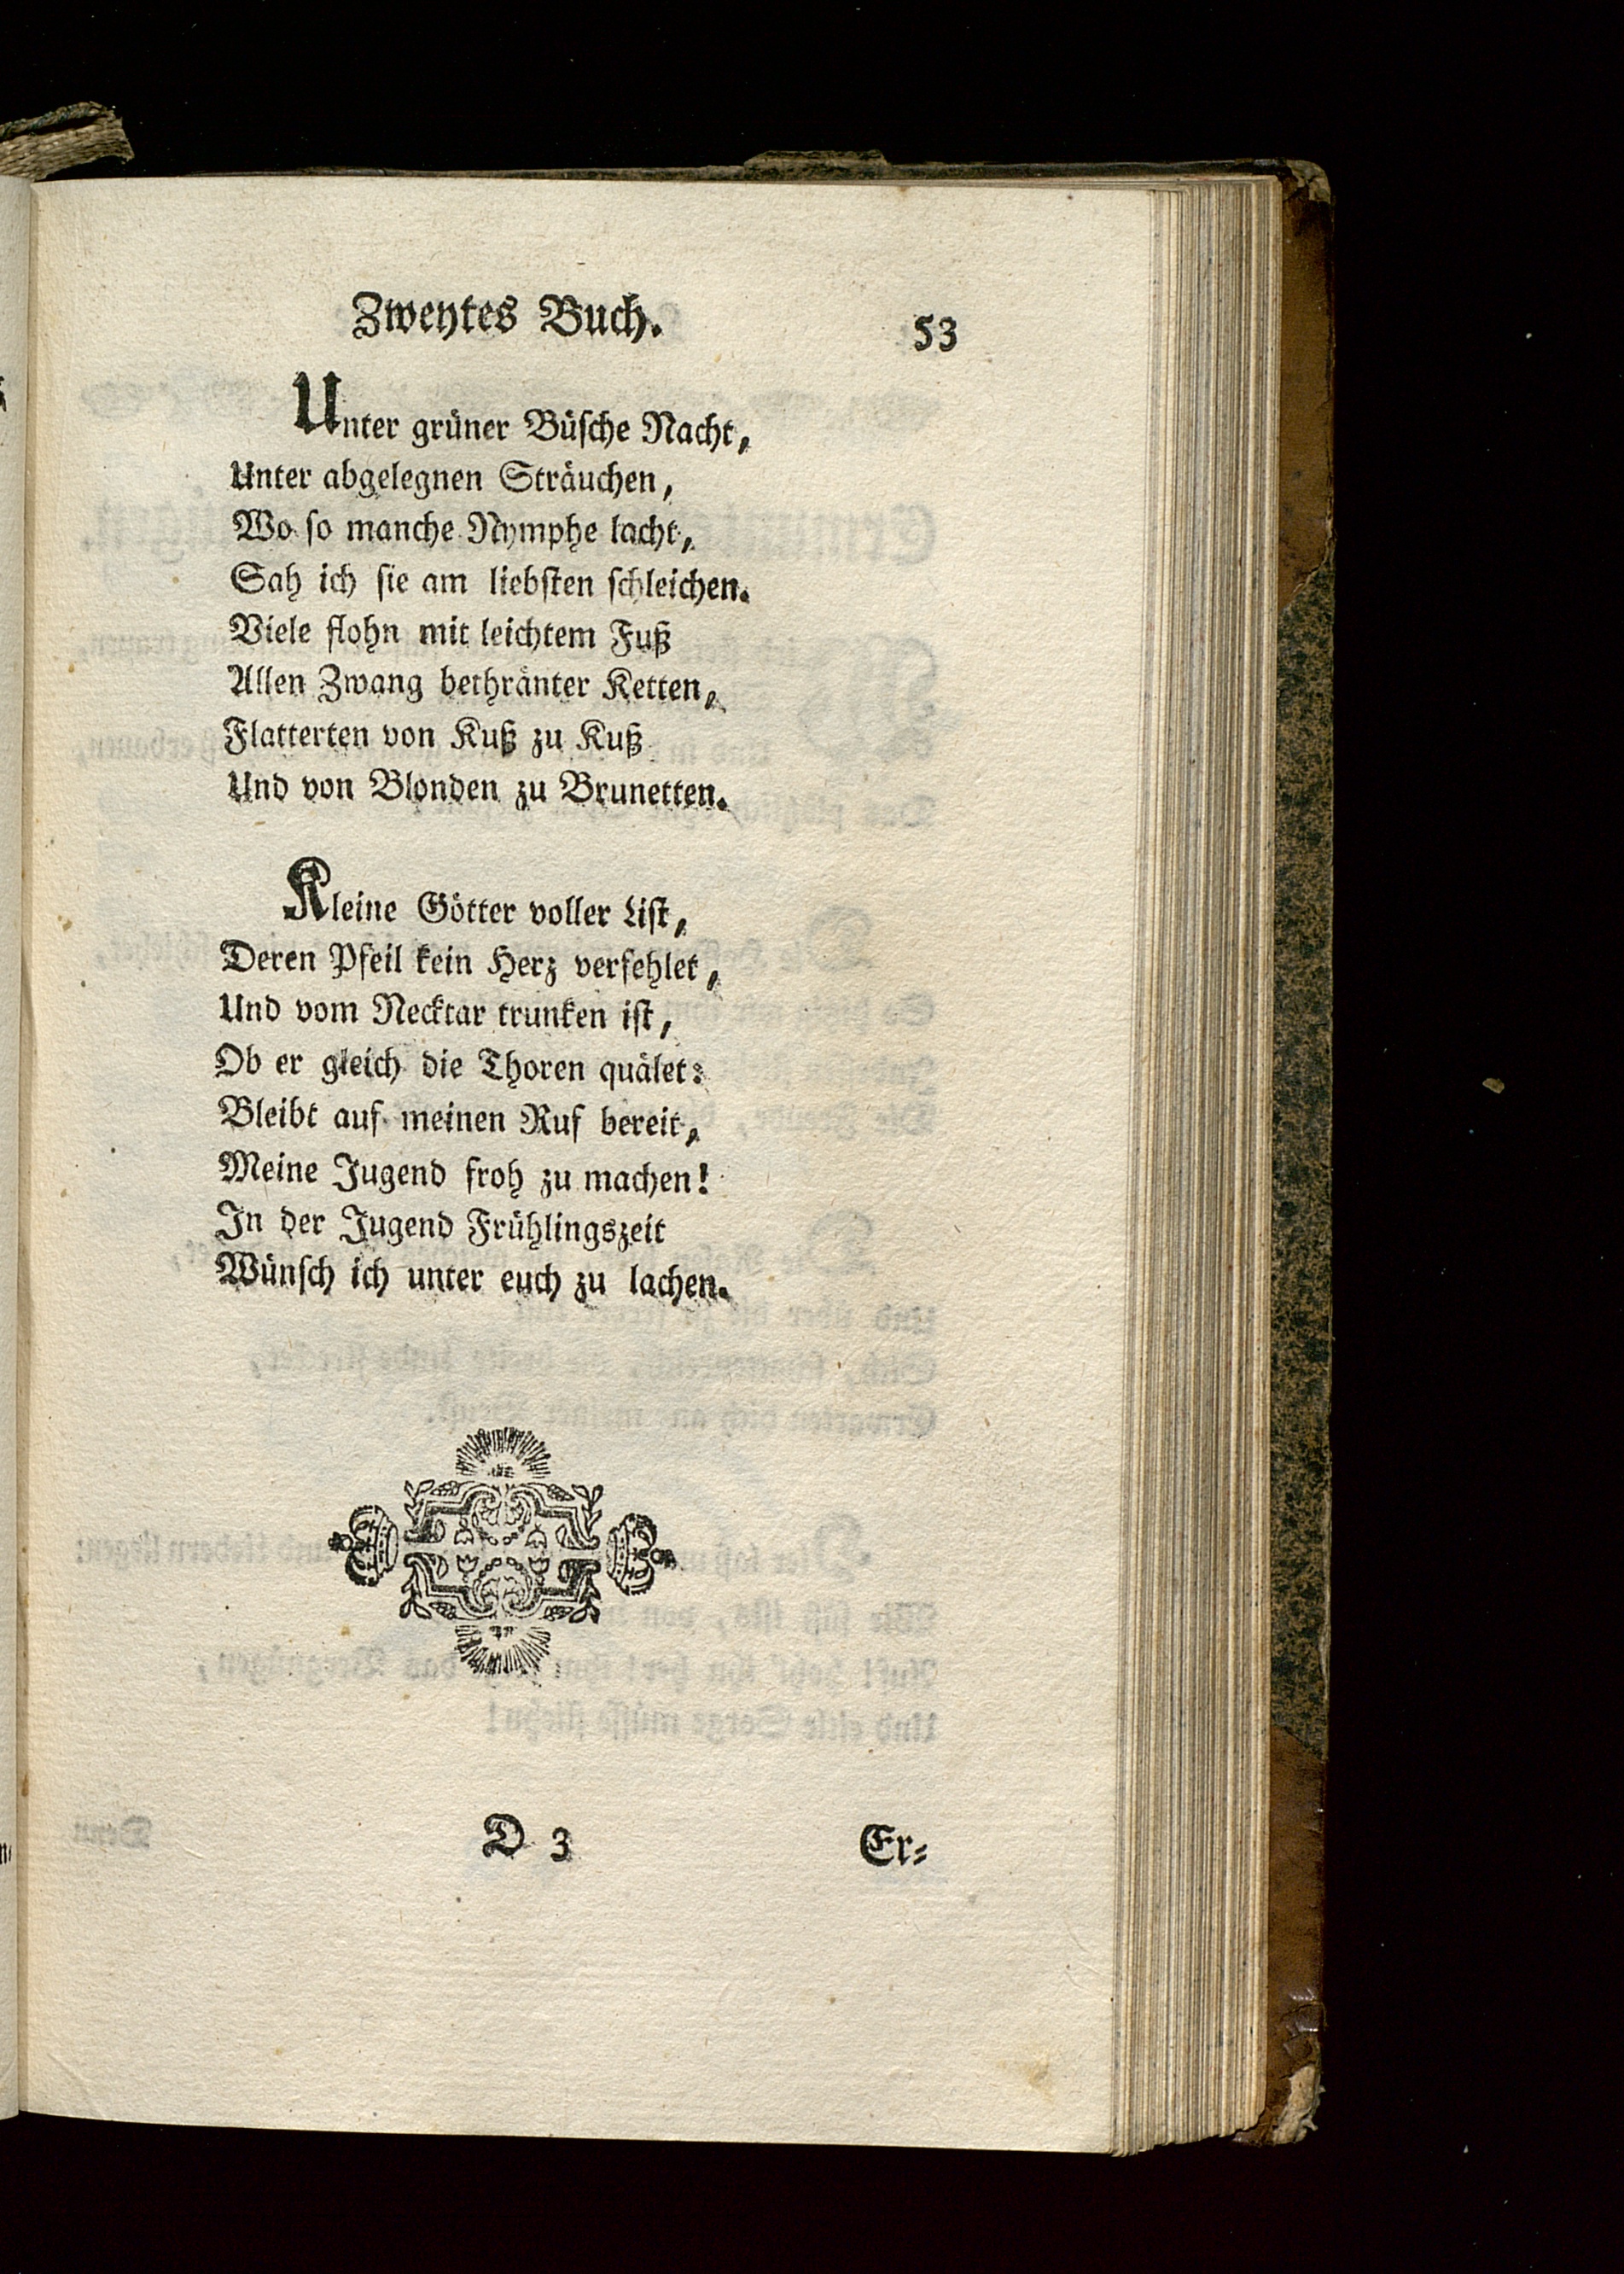 Zweytes Buch. 53
Unter grüner Büsche Nacht,
Unter abgelegnen Sträuchen,
Wo so manche Nymphe lacht,
Sah ich sie am liebsten schleichen.
Viele flohn mit leichtem Fuß
Allen Zwang bethränter Ketten,
Flatterten von Kuß zu Kuß
Und von Blonden zu Brunetten.
Kleine Götter voller List,
Deren Pfeil kein Herz verfehlet,
Und vom Necktar trunken ist,
Ob er gleich die Thoren quälet:
Bleibt auf meinen Ruf bereit,
Meine Jugend froh zu machen!
In der Jugend Frühlingszeit
Wünsch ich unter euch zu lachen.
D 3 Er-